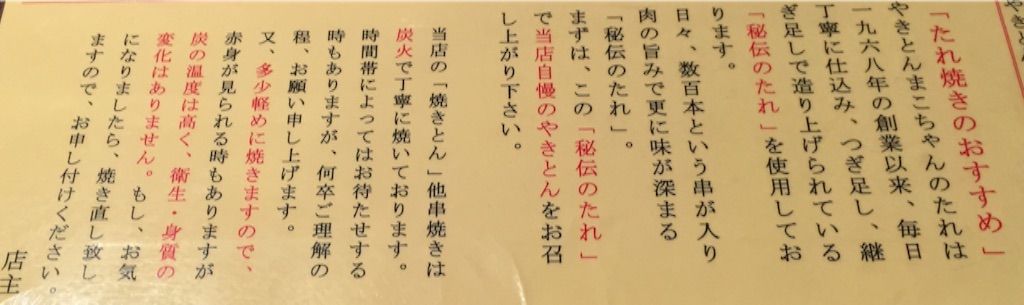 「たれ焼きのおすすめ」
やきとんまこちゃんのたれは
一九六八年の創業以来、毎日
丁寧に仕込み、つぎ足し、継
ぎ足しで造り上げられている
「秘伝のたれ」を使用してお
ります。
日々、数百本という串が入り
肉の旨みで更に味が深まる
「秘伝のたれ」。
まずは、この「秘伝のたれ」
で当店自慢のやきとんをお召
し上がり下さい。
当店の「焼きとん」他串焼きは
炭火で丁寧に焼いております。
時間帯によってはお待たせする
時もありますが、何卒ご理解の
程、お願い申し上げます。
又、多少軽めに焼きますので、
赤身が見られる時もありますが
炭の温度は高く、衛生・身質の
変化はありません。もし、お気
になりましたら、焼き直し致し
ますので、お申し付けください。
店主